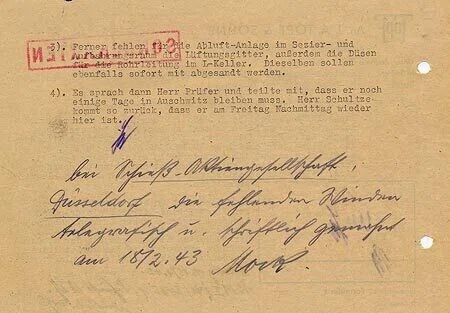 3). Ferner fehlen für die Abluft-Anlage im Sezier- und
Aufbahrungsraum die Lüftungsgitter, außerdem die Düsen
für die Rohrleitung im L-Keller. Dieselben sollen
ebenfalls sofort mit abgesandt werden.
4). Es sprach dann Herr Prüfer und teilte mit, dass er noch
einige Tage in Auschwitz bleiben muss. Herr Schultze
kommt so zurück, dass er am Freitag Nachmittag wieder
hier ist.
bei Schieß-Aktiengesellschaft,
Düsseldorf die fehlenden Winden
telegrafisch u. schriftlich gemahnt
am 18/2.43 Mock.